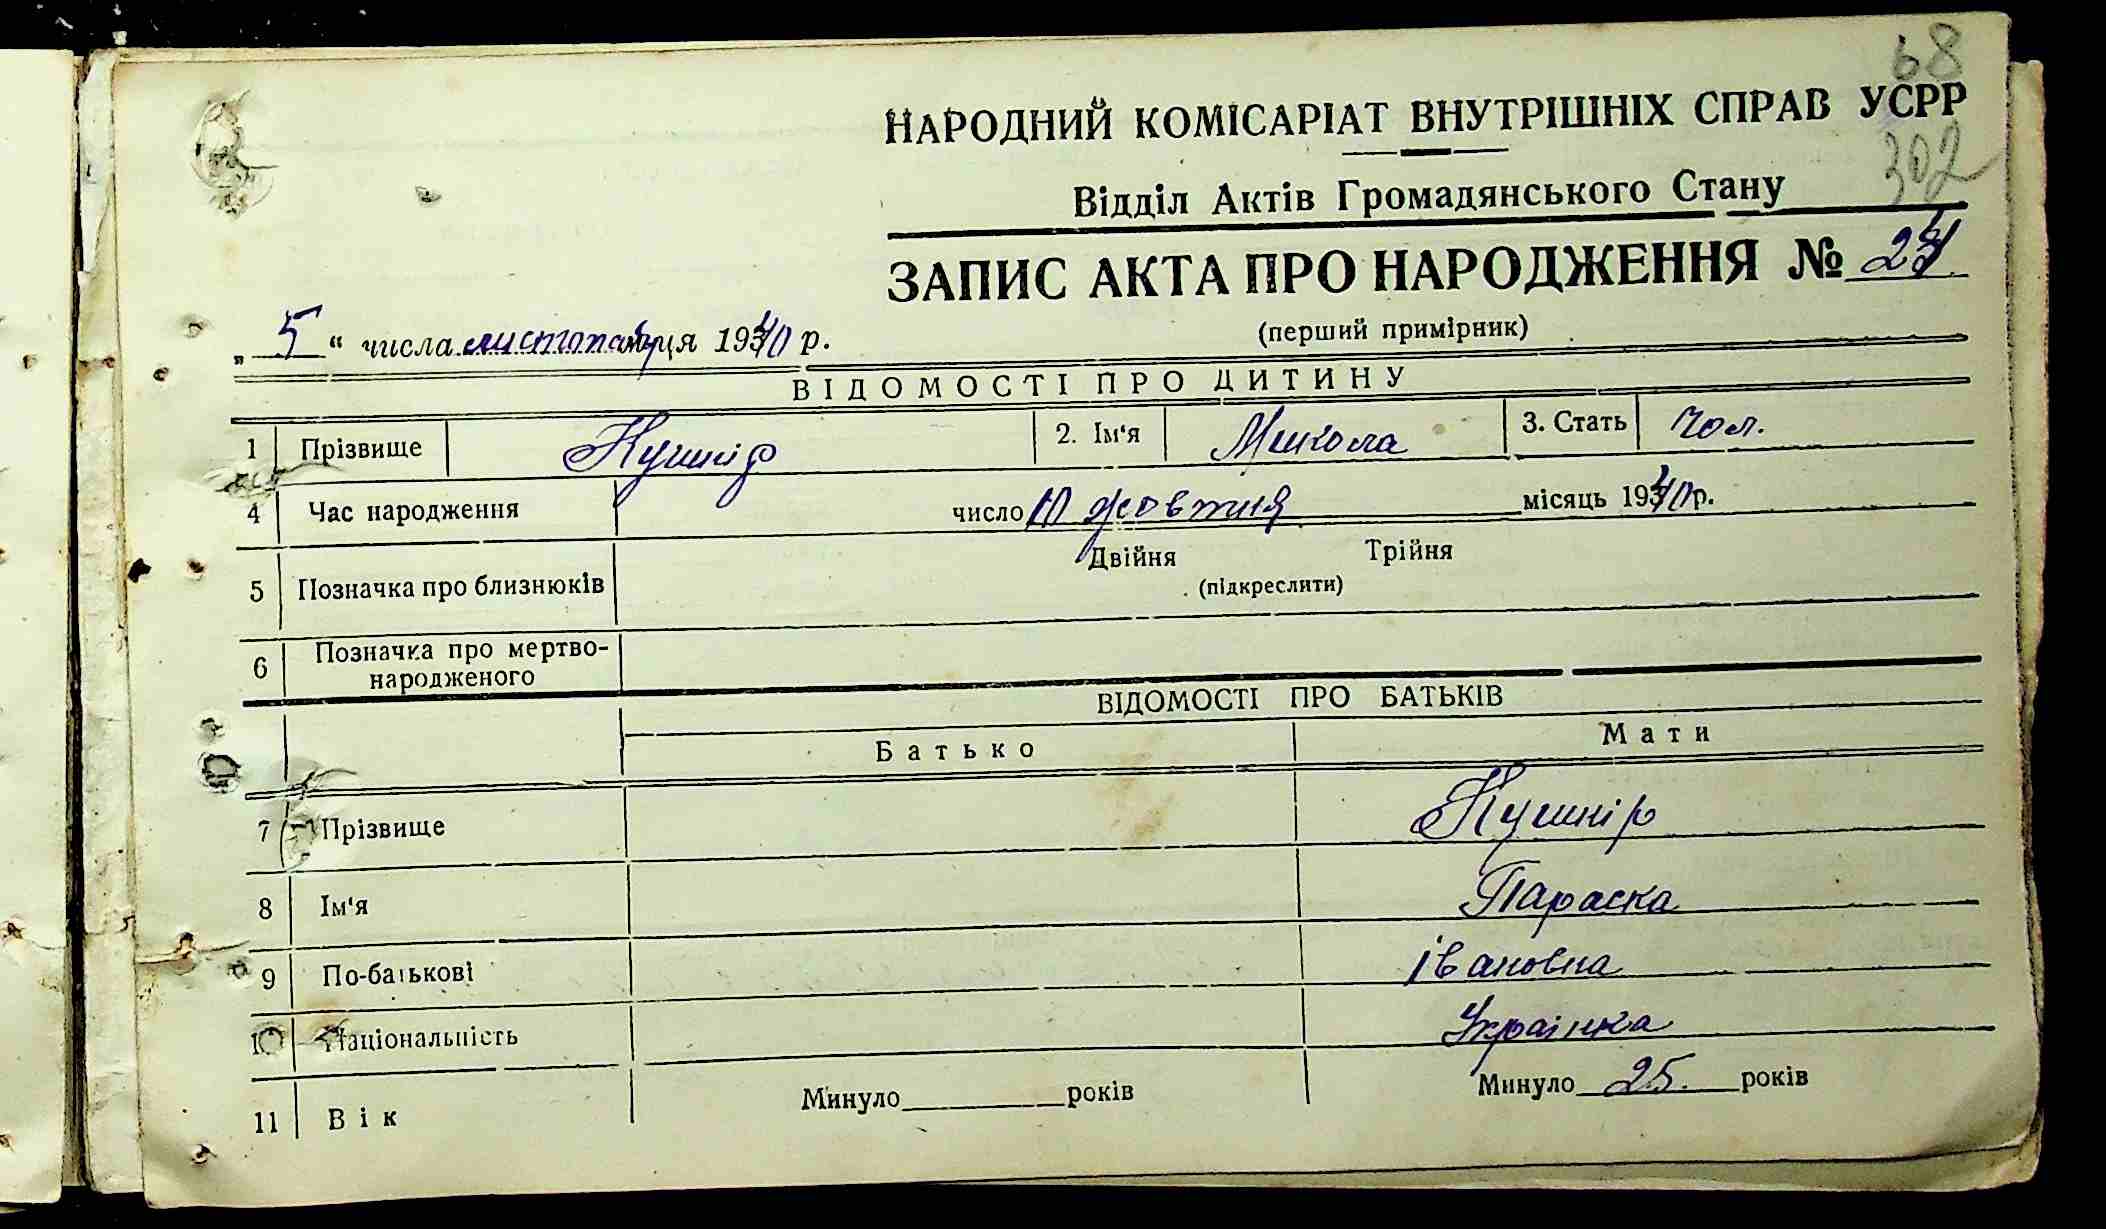 68
НАРОДНИЙ КОМІСАРІАТ ВНУТРІШНІХ СПРАВ УСРР
302
Відділ Актів Громадянського Стану
ЗАПИС АКТА ПРО НАРОДЖЕННЯ №
(перший примірник)
„ 5 “ числа листопад м-ця 1940 р.
ВІДОМОСТІ ПРО ДИТИНУ
1 Прізвище Кушнір 2. Ім'я Микола 3. Стать чол.
4 Час народження число 10 жовтня місяць 1940 р.
5 Позначка про близнюків Двійня Трійня
(підкреслити)
6 Позначка про мертво-
народженого
ВІДОМОСТІ ПРО БАТЬКІВ
Батько Мати
7 Прізвище Кушнір
8 Ім'я Параска
9 По-батькові Івановна
10 Національність Українка
11 Вік Минуло років Минуло 25. років